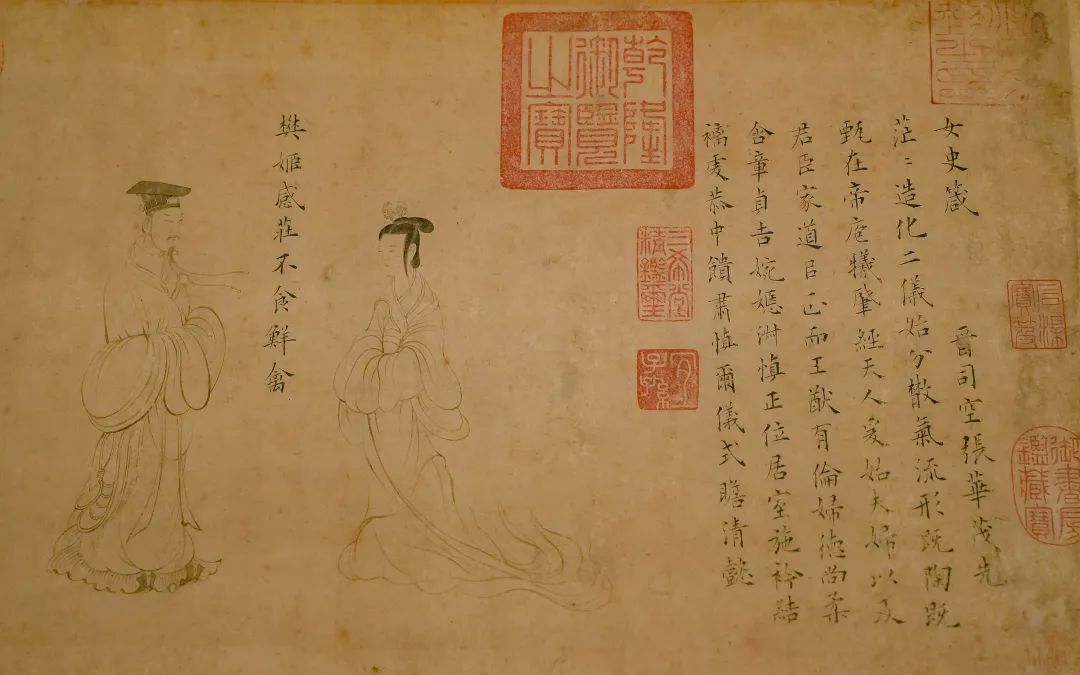 女史箴
晉司空張華茂先
茫〻造化二儀始分散氣流形既陶既
甄在帝庖犧肇經天人爰始夫婦以及
君臣家道㠯正而王猷有倫婦德尚柔
含章貞吉婉嫕淑慎正位居室施衿結
褵虔恭中饋肅慎爾儀式瞻清懿
樊姬感莊不食鮮禽
乾隆御覽之寶
三希堂精鑑璽
宜子孫
石渠寶笈
御書房鑑藏寶